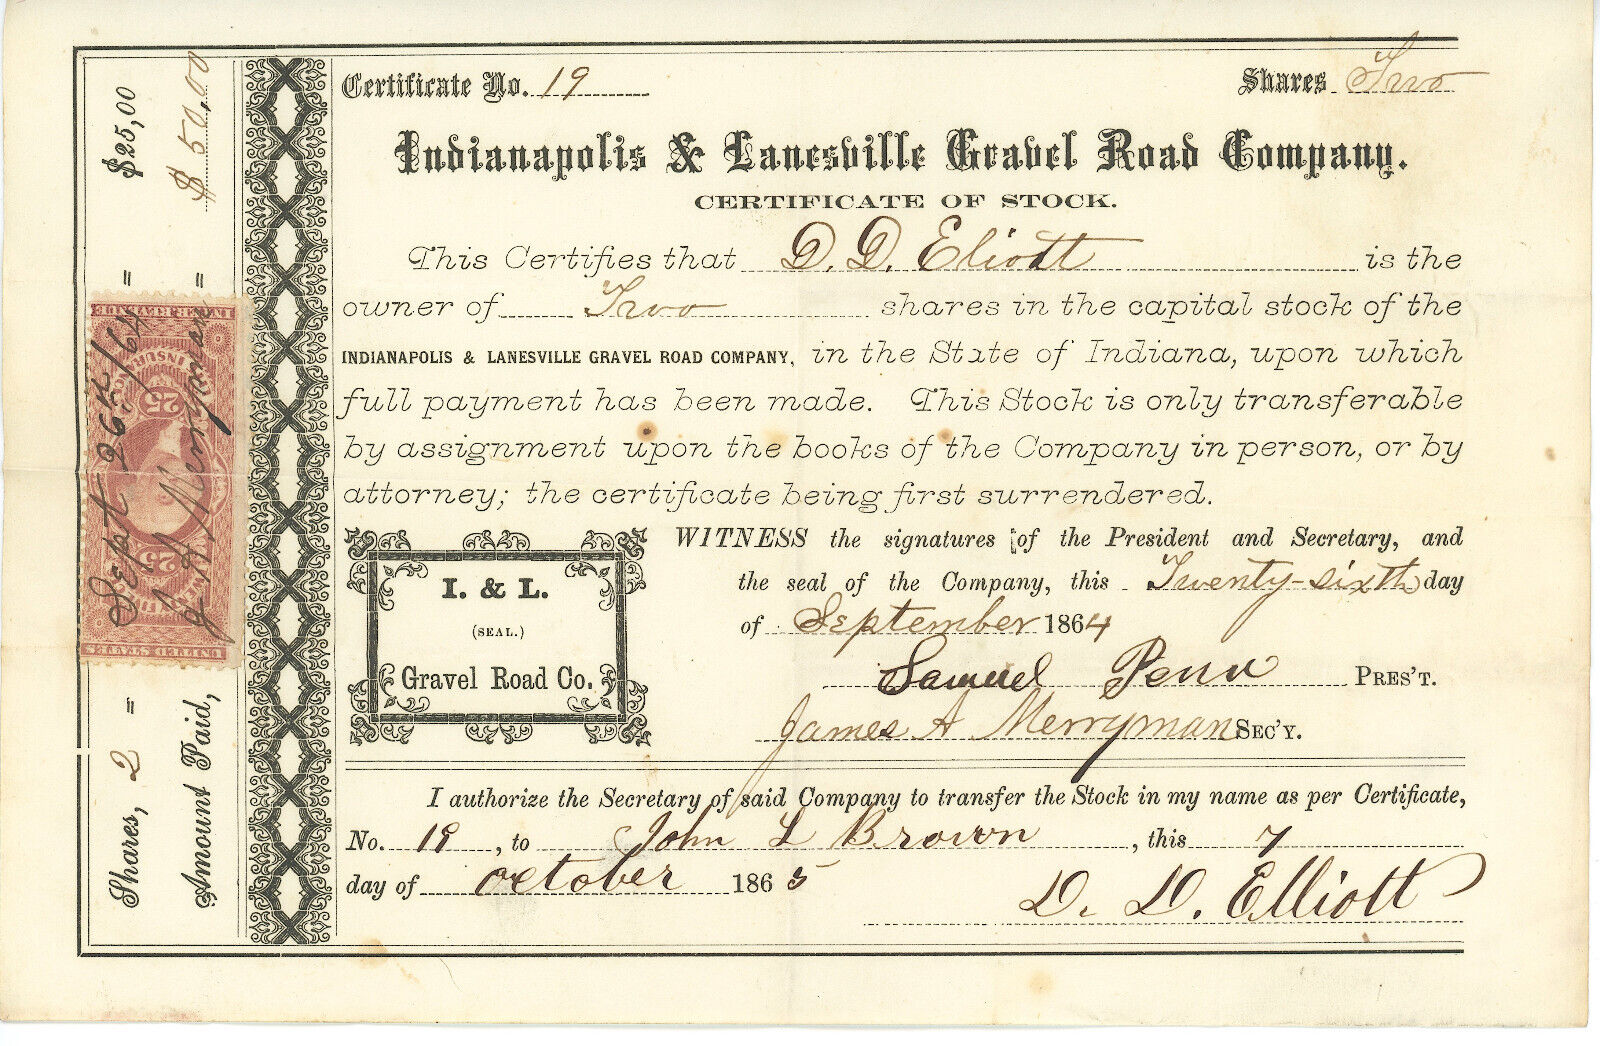 Certificate No. 19 Shares Two
Indianapolis & Lanesville Gravel Road Company.
CERTIFICATE OF STOCK.
This Certifies that D. D. Eliott is the
owner of Two shares in the capital stock of the
INDIANAPOLIS & LANESVILLE GRAVEL ROAD COMPANY, in the State of Indiana, upon which
full payment has been made. This Stock is only transferable
by assignment upon the books of the Company in person, or by
attorney; the certificate being first surrendered.
WITNESS the signatures of the President and Secretary, and
the seal of the Company, this Twenty-sixth day
of September 1864
Samuel Penn PRES'T.
James A Merryman SEC'Y.
I. & L.
(SEAL.)
Gravel Road Co.
I authorize the Secretary of said Company to transfer the Stock in my name as per Certificate,
No. 19, to John L Brown, this 7
day of october 1865
D. D. Elliott
Shares, 2 = = $25,00
Amount Paid, = $50,00
UNITED STATES
INTER. REVENUE
INSURANCE
25
25
Sept 26th/64
J A Merryman